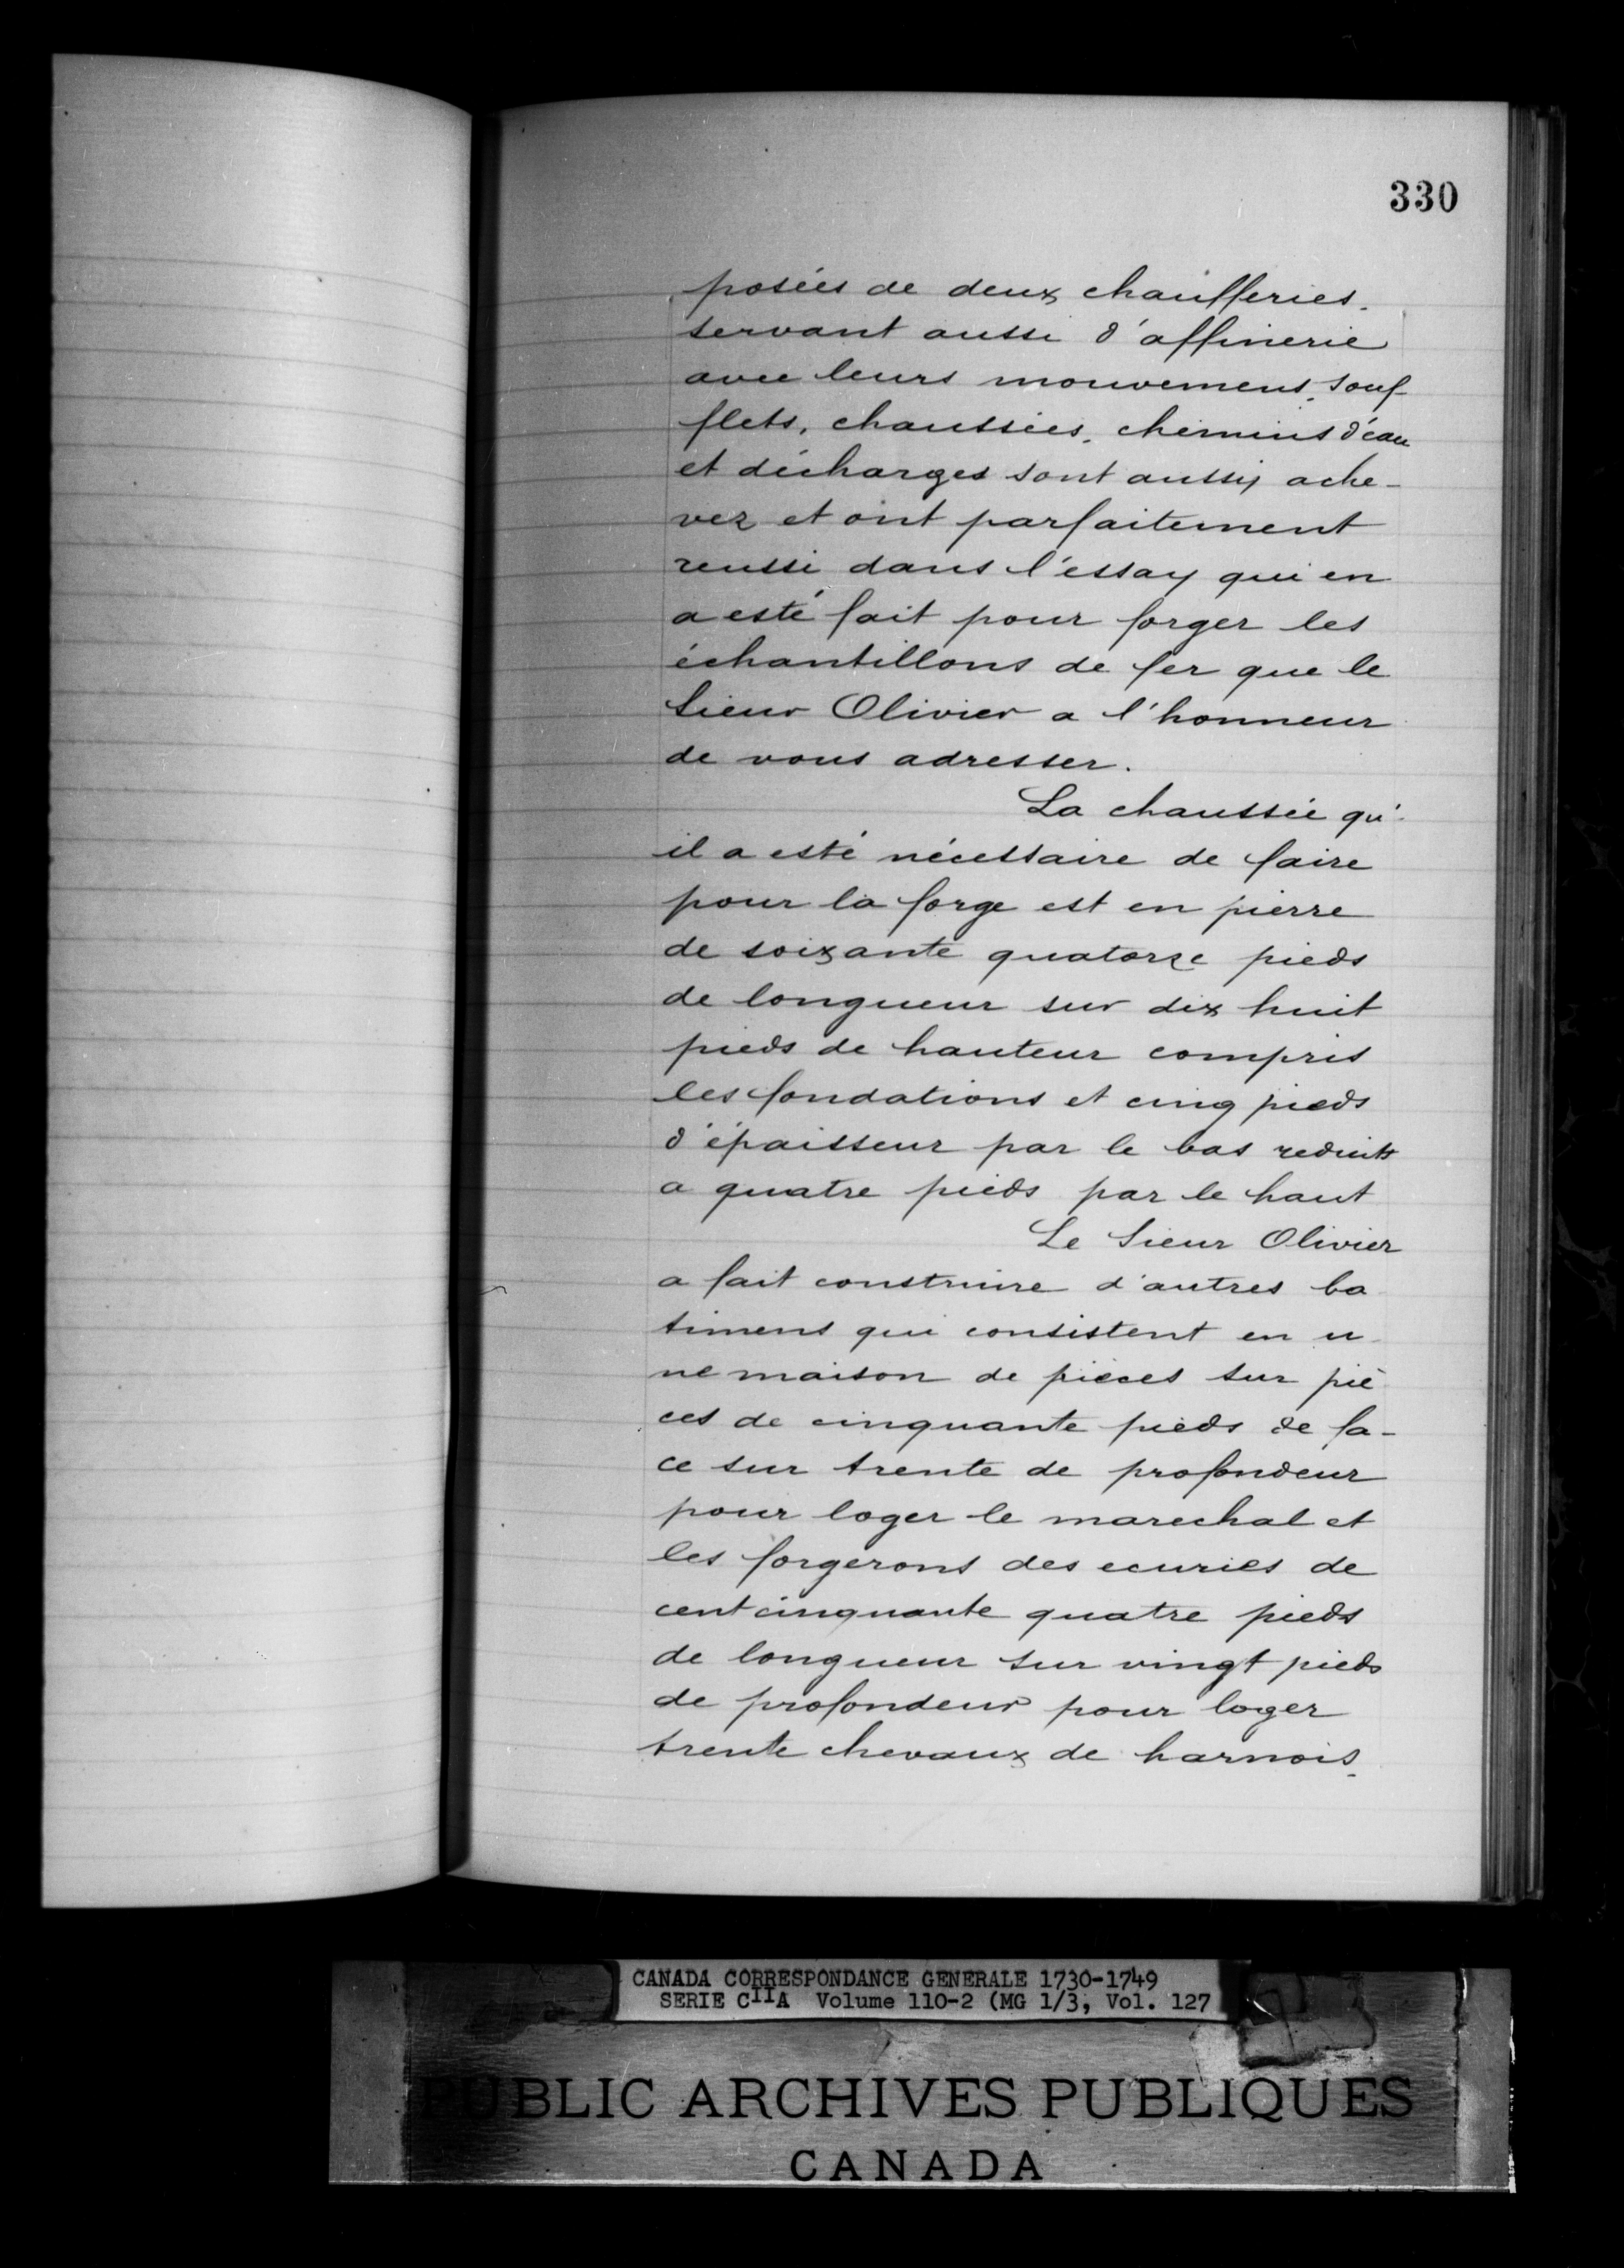 330
posées de deux chaufferies.
servant aussi d'affinerie
avec leurs mouvemens, souf-
flets, chaussées, chemins d'eau
et décharges sont aussy ache-
vez et ont parfaitement
reussi dans l'essay qui en
a esté fait pour forger les
échantillons de fer que le
Sieur Olivier a l'honneur
de vous adresser.
La chaussée qu'-
il a esté nécessaire de faire
pour la forge est en pierre
de soixante quatorze pieds
de longueur sur dix huit
pieds de hauteur compris
les fondations et cinq pieds
d'épaisseur par le bas reduits
a quatre pieds par le haut
Le Sieur Olivier
a fait construire d'autres ba
timens qui consistent en u
ne maison de pièces sur piè
ces de cinquante pieds de fa-
ce sur trente de profondeur
pour loger le marechal et
les forgerons des ecuries de
cent cinquante quatre pieds
de longueur sur vingt pieds
de profondeur pour loger
trente chevaux de harnois.
CANADA CORRESPONDANCE GENERALE 1730-1749
SERIE CIIA Volume 110-2 (MG 1/3, Vol. 127
PUBLIC ARCHIVES PUBLIQUES
CANADA